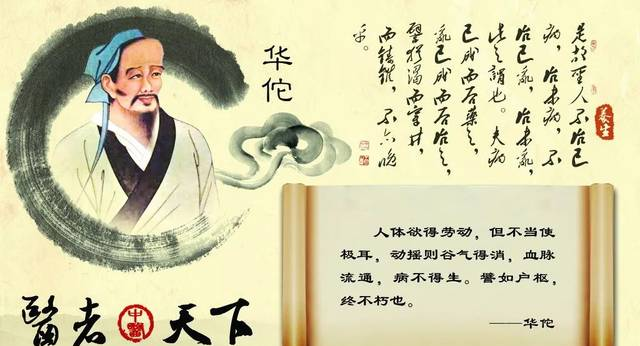 华佗
是故聖人不治已
病,治未病,不
治已亂,治未亂,
此之謂也。夫病
已成而后藥之,
亂已成而后治之,
譬猶渴而穿井,
而鑄錐,不亦晚
乎。
養生
人体欲得劳动,但不当使
极耳,动摇则谷气得消,血脉
流通,病不得生。譬如户枢,
终不朽也。
——华佗
醫者中醫天下